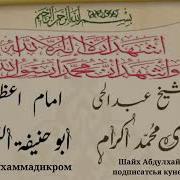 بسم الله الرحمن الرحيم
اشهد ان لا اله الا الله
واشهد ان محمد ارسول الله
امام اعظم شيخ عبدالحى
أبو حنيفة محمد اكرام
Мухаммадикром
Шайх Абдулхай
подписатсья куне